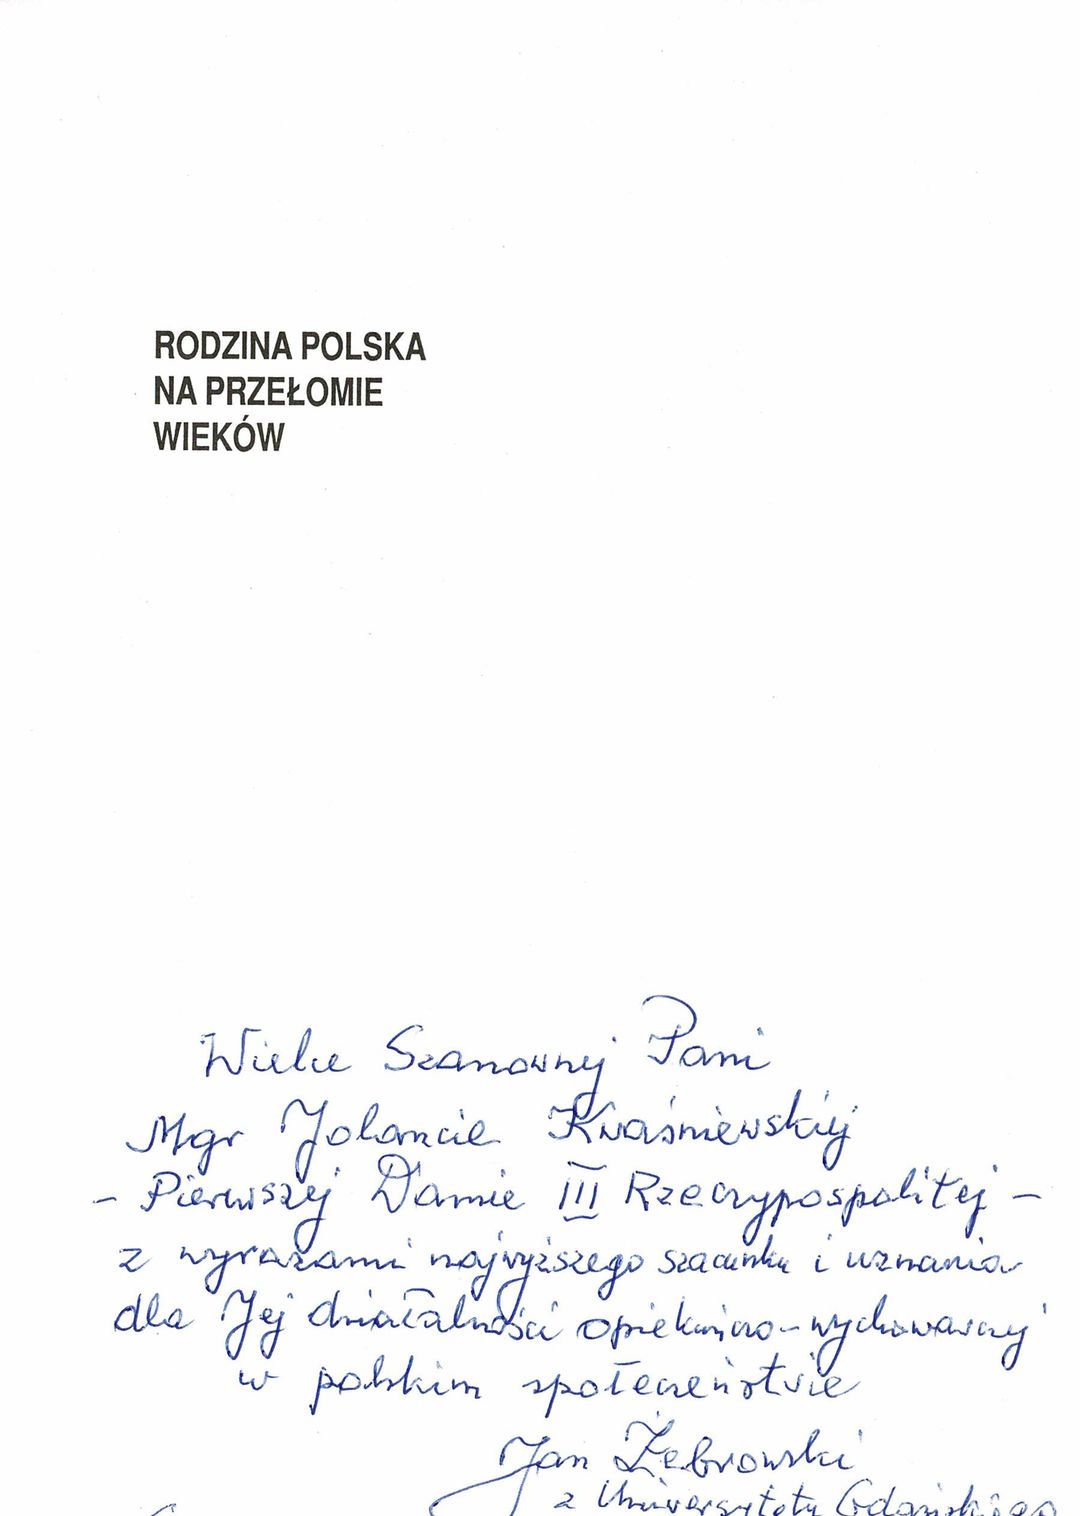 RODZINA POLSKA
NA PRZEŁOMIE
WIEKÓW
Wielce Szanownej Pani
Mgr Jolancie Kwaśniewskiej
- Pierwszej Damie III Rzeczypospolitej -
z wyrazami najwyższego szacunku i uznania
dla Jej działalności opiekuńczo-wychowawczej
w polskim społeczeństwie
Jan Żebrowski
z Uniwersytetu Gdańskiego